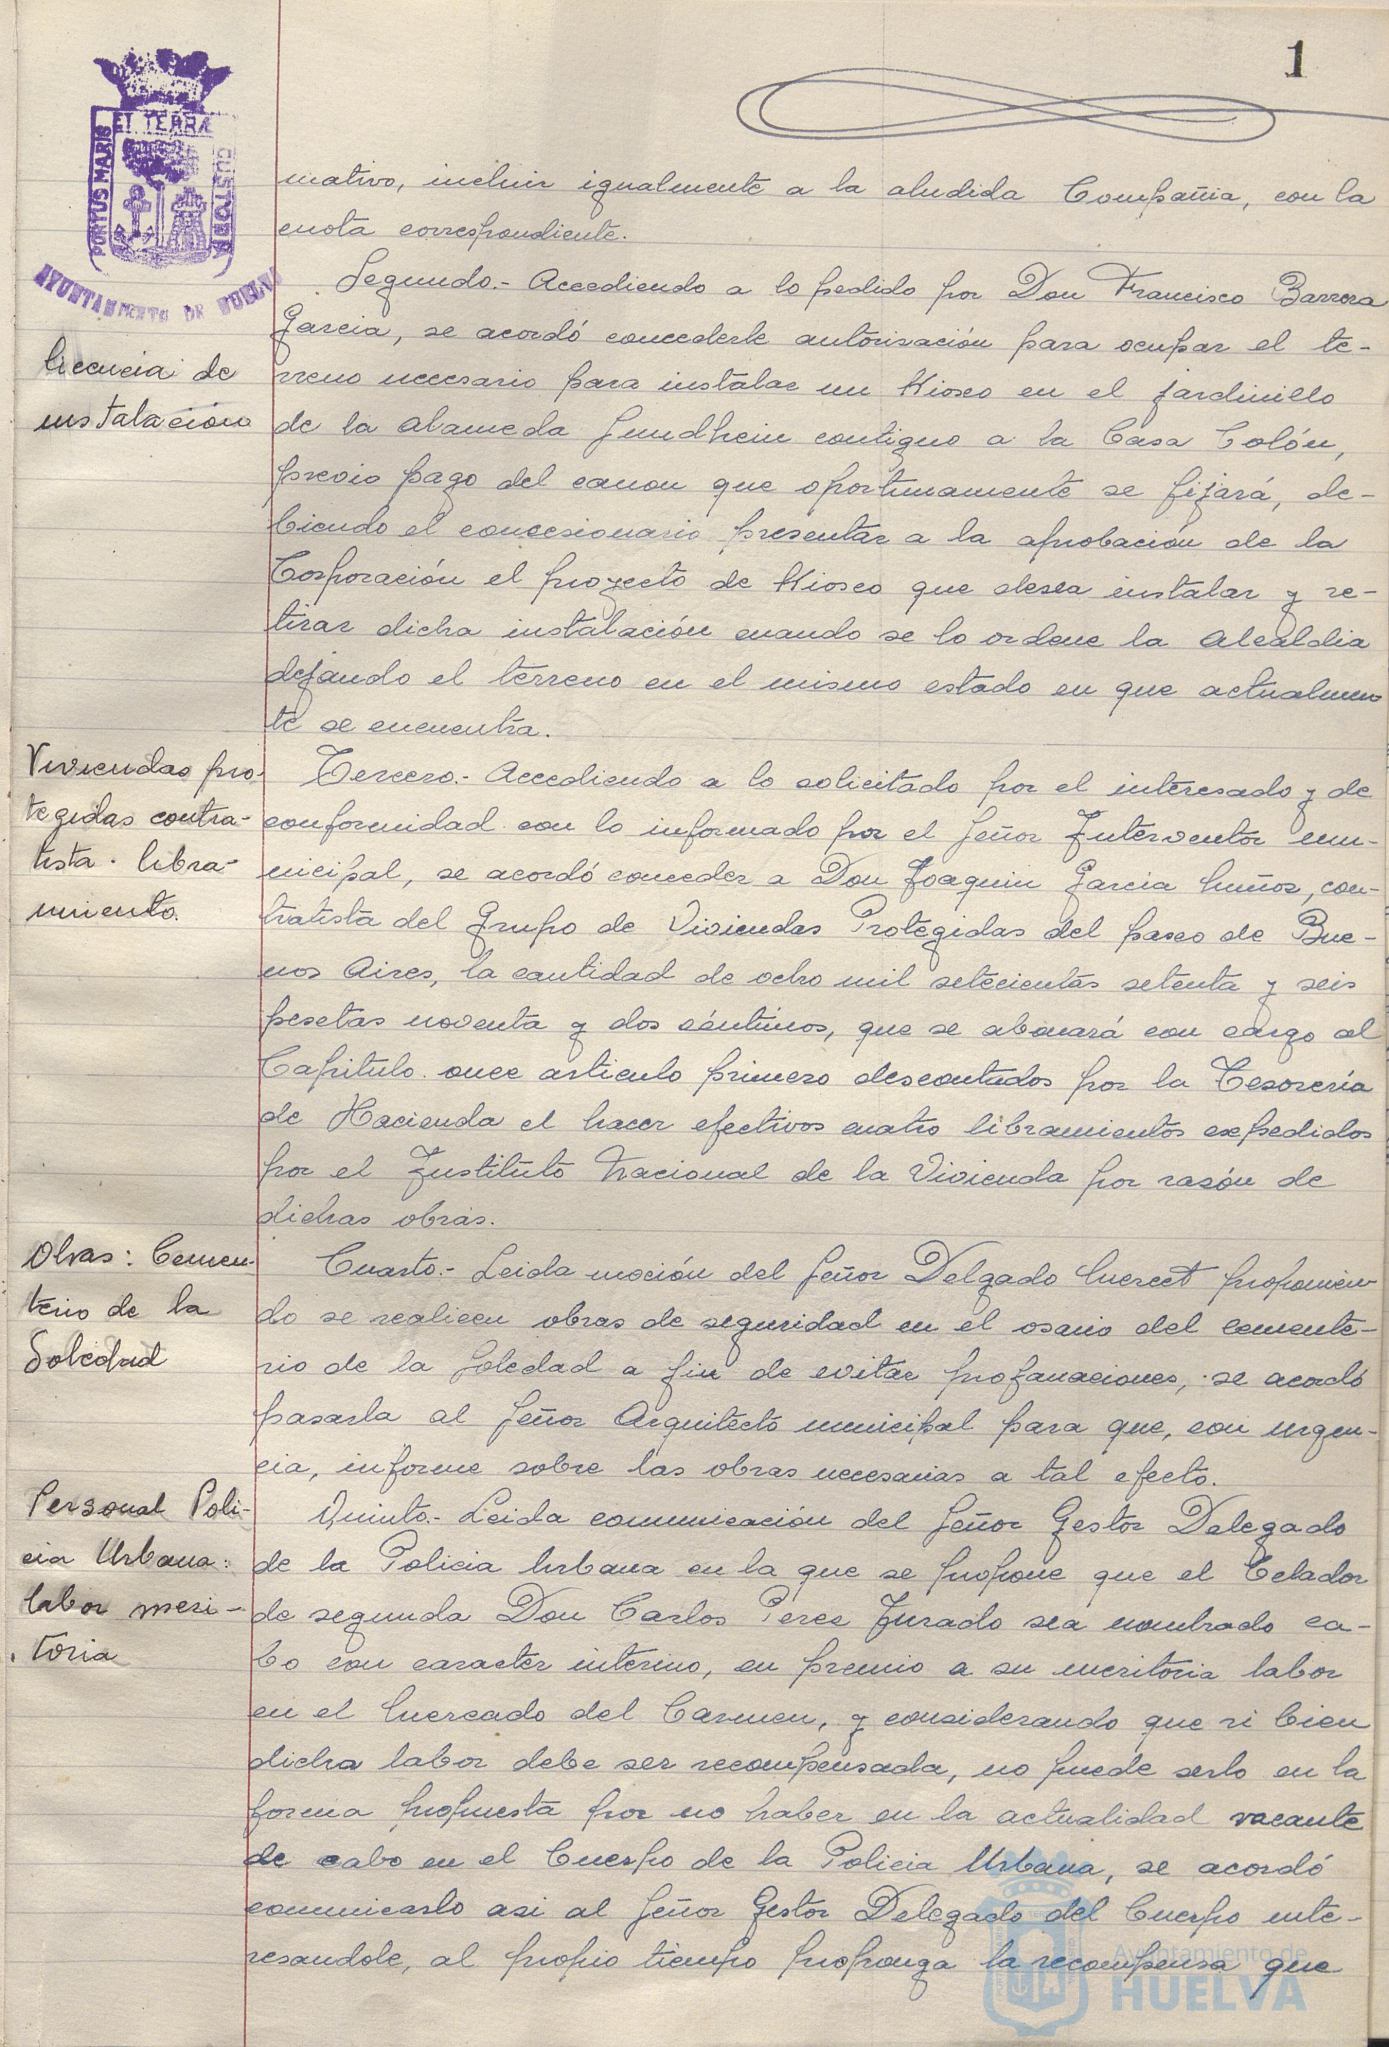 1
ET TERRÆ
PORTUS MARIS
CUSTODIA
AYUNTAMIENTO DE HUELVA
mativo, incluir igualmente a la aludida Compañia, con la
cuota correspondiente.
Segundo.- Accediendo a lo pedido por Don Francisco Barrera
Garcia, se acordó concederle autorización para ocupar el te-
rreno necesario para instalar un Kiosco en el jardinillo
de la Alameda Sundhein contiguo a la Casa Colón,
previo pago del canon que oportunamente se fijará, de-
biendo el concesionario presentar a la aprobación de la
Corporación el proyecto de Kiosco que desea instalar y re-
tirar dicha instalación cuando se lo ordene la Alcaldia
dejando el terreno en el mismo estado en que actualmen
te se encuentra.
licencia de
instalación
Tercero.- Accediendo a lo solicitado por el interesado y de
conformidad con lo informado por el Señor Interventor mu-
nicipal, se acordó conceder a Don Joaquin Garcia Muñoz, con-
tratista del Grupo de Viviendas Protegidas del paseo de Bue-
nos Aires, la cantidad de ocho mil setecientas setenta y seis
pesetas noventa y dos céntimos, que se abonará con cargo al
Capitulo once articulo primero descontados por la Tesorería
de Hacienda el hacer efectivos cuatro libramientos expedidos
por el Instituto Nacional de la Vivienda por razón de
dichas obras.
Viviendas pro-
tegidas contra-
tista. libra-
miento.
Cuarto.- Leida moción del Señor Delgado Mercet proponien
do se realicen obras de seguridad en el osario del cemente-
rio de la Soledad a fin de evitar profanaciones, se acordó
pasarla al Señor Arquitecto municipal para que, con urgen-
cia, informe sobre las obras necesarias a tal efecto.
Obras: Cemen-
terio de la
Soledad
Quinto.- Leida comunicación del Señor Gestor Delegado
de la Policia Urbana en la que se propone que el Celador
de segunda Don Carlos Perez Jurado sea nombrado ca-
bo con caracter interino, en premio a su meritoria labor
en el Mercado del Carmen, y considerando que si bien
dicha labor debe ser recompensada, no puede serlo en la
forma propuesta por no haber en la actualidad vacante
de cabo en el Cuerpo de la Policia Urbana, se acordó
comunicarlo asi al Señor Gestor Delegado del Cuerpo inte-
resandole, al propio tiempo proponga la recompensa que
Personal Poli-
cia Urbana:
labor meri-
toria
Ayuntamiento de
HUELVA